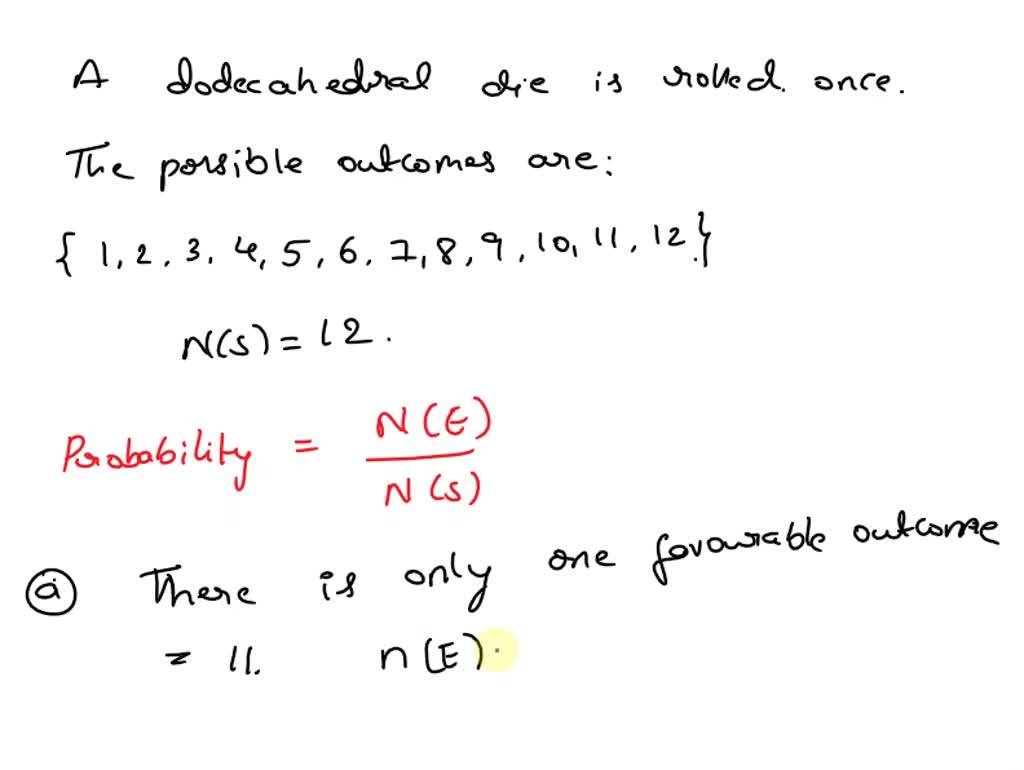 A dodecahedral die is rolled once.
The possible outcomes are:
{ 1, 2, 3, 4, 5, 6, 7, 8, 9, 10, 11, 12 }
N(S) = 12.
Probability = N(E) / N(S)
ⓐ There is only one favourable outcome
= 11. n(E)